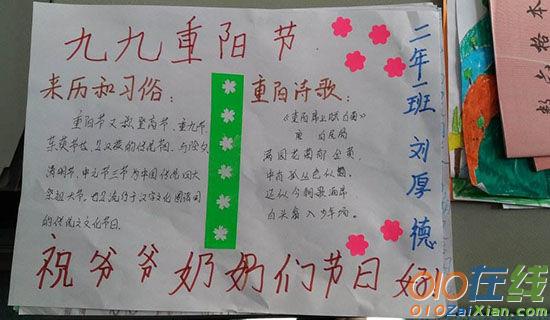 九九重阳节
来历和习俗：
重阳节又称登高节、重九节、
茱萸节也是汉族的传统节日，与除夕
清明节、中元节三节为中国传统四大
祭祖大节。也是流行于汉字文化圈诸国
的传统文化节日。
重阳诗歌：
唐
满园花菊郁金黄，
中有孤丛色似霜。
还似今朝歌酒席
白头翁入少年场。
二年一班 刘厚德
祝爷爷奶奶们节日好
010在线
010ZaiXian.com